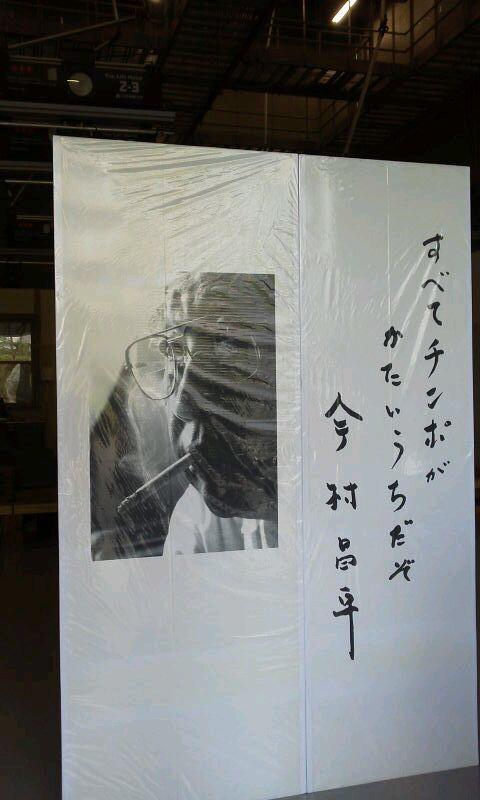 2-3
すべてチンポが
かたいうちだぞ
今村昌平